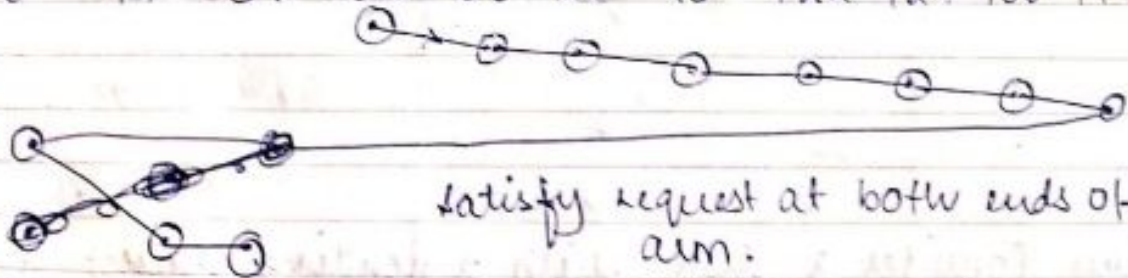 satisfy request at both ends of
arm.